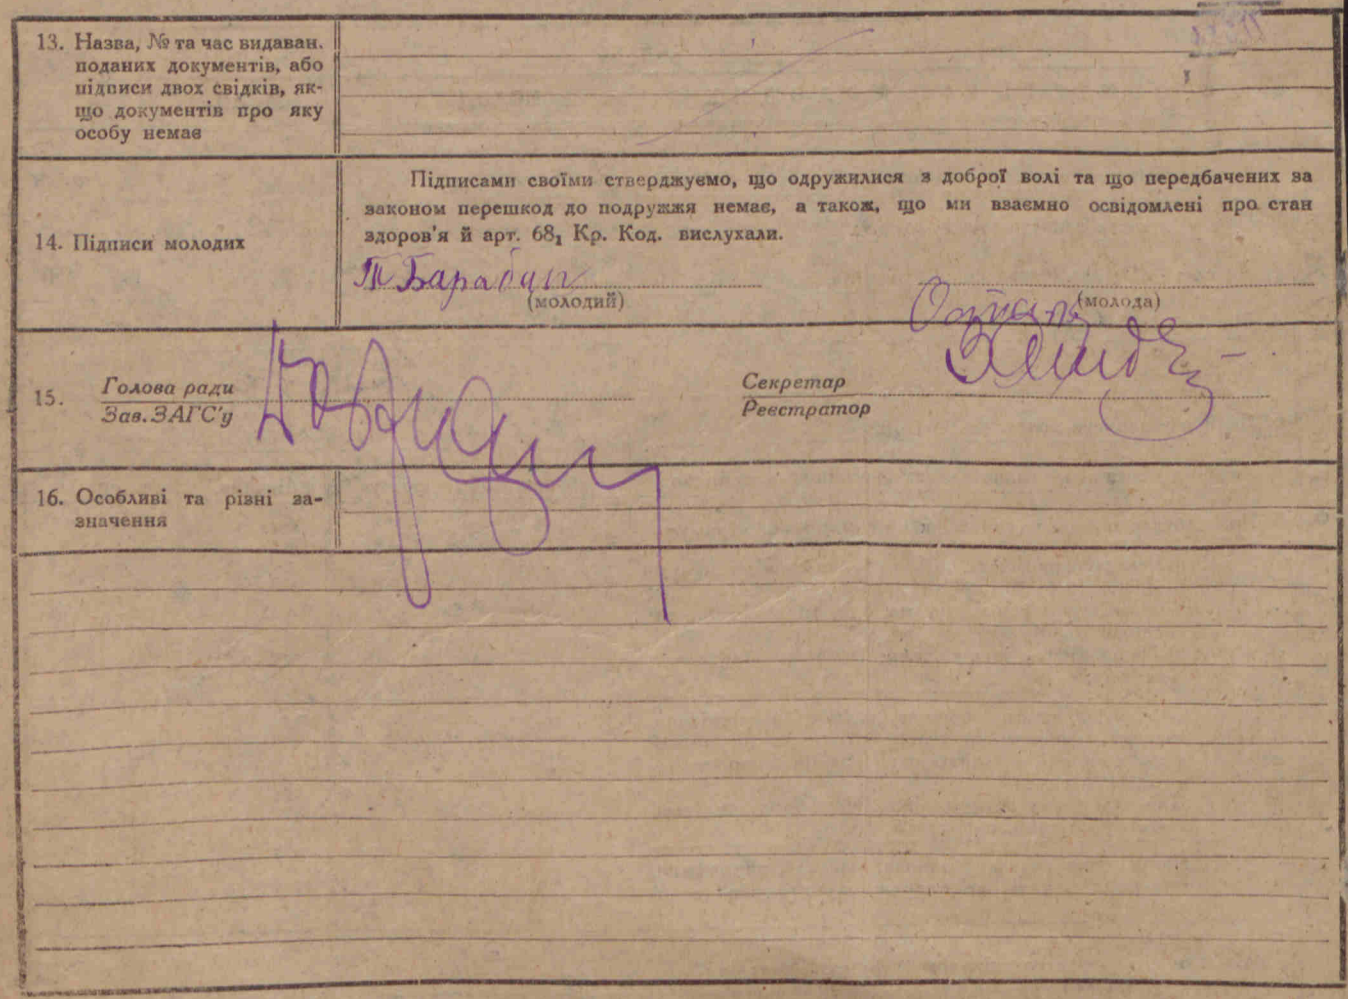 13. Назва, № та час видаван.
поданих документів, або
підписи двох свідків, як-
що документів про яку
особу немає
Підписами своїми стверджуємо, що одружилися з доброї волі та що передбачених за
законом перешкод до подружжя немає, а також, що ми взаємно освідомлені про стан
14. Підписи молодих
здоров'я й арт. 68₁ Кр. Код. вислухали.
(молодий)
(молода)
15.
Голова ради
Зав. ЗАГС'у
Секретар
Реєстратор
16. Особливі та різні за-
значення